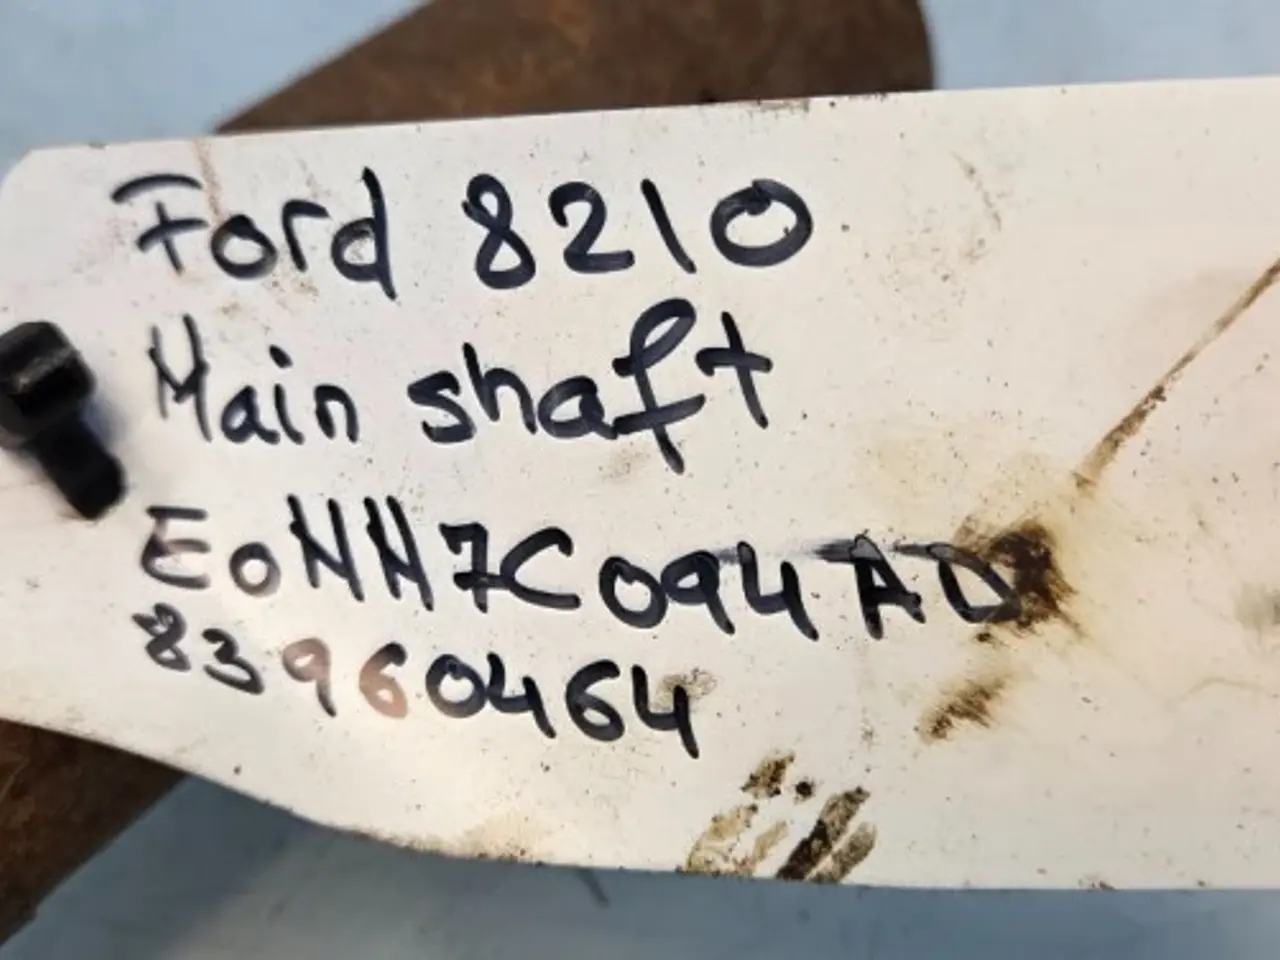 Ford 8210
Main shaft
E0NN7C094AD
83960464